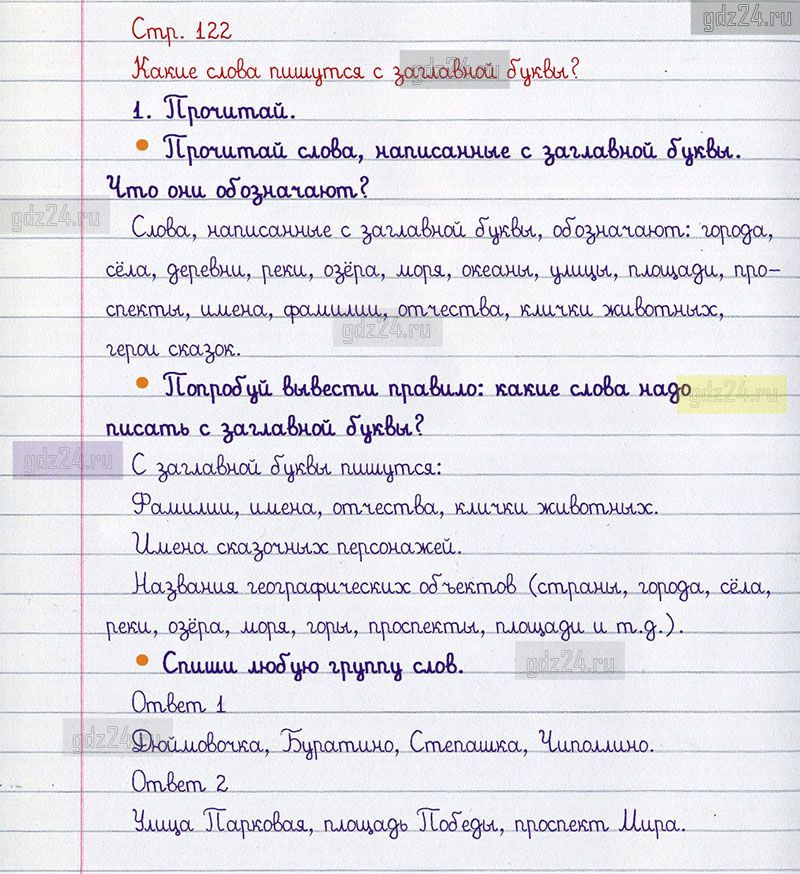 gdz24.ru
Стр. 122
Какие слова пишутся с заглавной буквы?
gdz24.ru
1. Прочитай.
• Прочитай слова, написанные с заглавной буквы.
Что они обозначают?
gdz24.ru
Слова, написанные с заглавной буквы, обозначают: города,
сёла, деревни, реки, озёра, моря, океаны, улицы, площади, про-
спекты, имена, фамилии, отчества, клички животных,
gdz24.ru
герои сказок.
• Попробуй вывести правило: какие слова надо
gdz24.ru
писать с заглавной буквы?
gdz24.ru
С заглавной буквы пишутся:
Фамилии, имена, отчества, клички животных.
Имена сказочных персонажей.
Названия географических объектов (страны, города, сёла,
реки, озёра, моря, горы, проспекты, площади и т.д.).
• Спиши любую группу слов.
gdz24.ru
Ответ 1
gdz24.ru
Дюймовочка, Буратино, Степашка, Чиполлино.
Ответ 2
Улица Парковая, площадь Победы, проспект Мира.